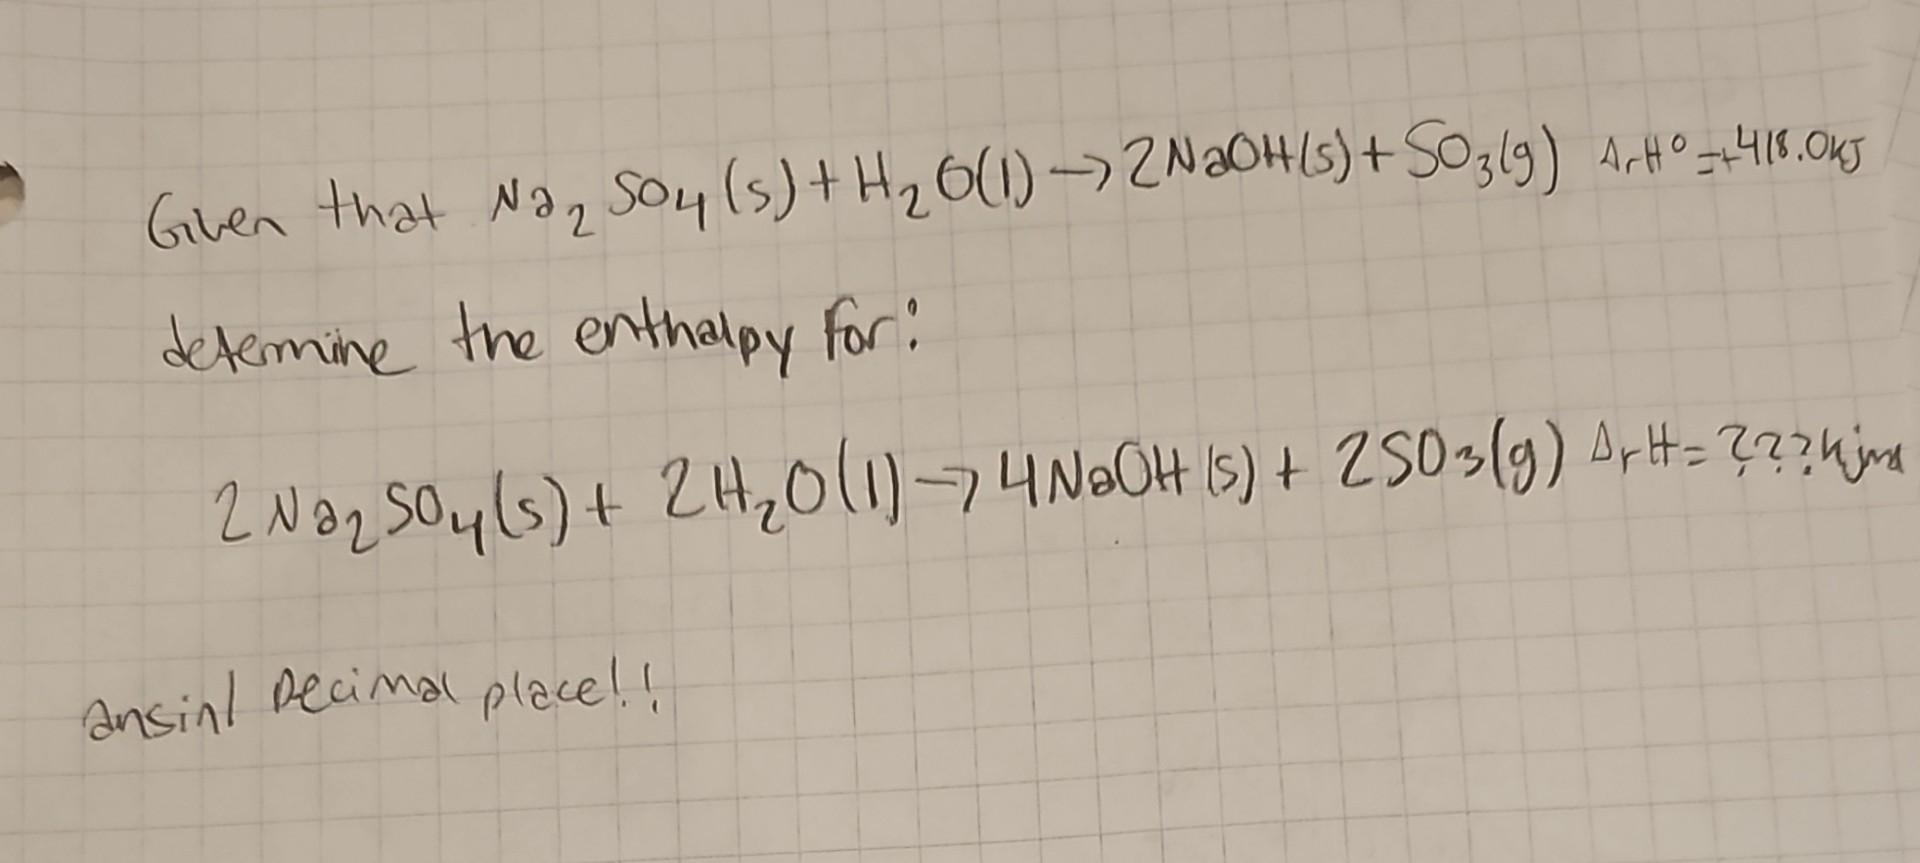 Given that Na₂SO₄(s) + H₂O(l) → 2NaOH(s) + SO₃(g) ΔrH° = +418.0kJ
determine the enthalpy for:
2Na₂SO₄(s) + 2H₂O(l) → 4NaOH(s) + 2SO₃(g) ΔrH = ???kj
ans in 1 Decimal place!!